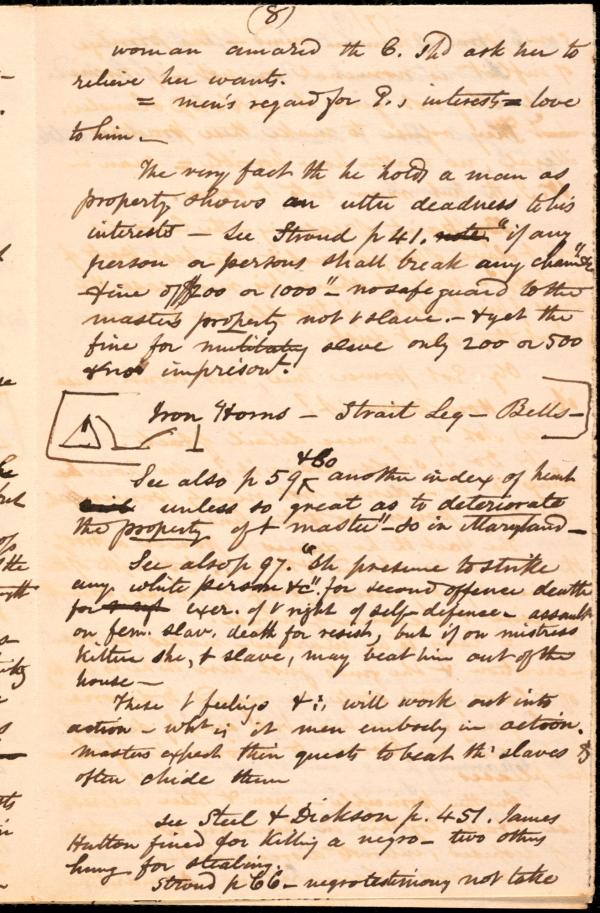 (8)
woman amared th C. Shd ask her to
relieve her wants.
= men's regard for P.s interests = love
to him. —
The very fact th he holds a man as
property shows an utter deadness to his
interests — See Stroud p 41. "if any
person or persons shall break any chain" &c
+ fine of $200 or 1000" — no safeguard to the
master's property not + slave. — & yet the
fine for mutilatg slave only 200 or 500
imprisont.
Iron Horns — Strait Leg — Bells —
See also p 59 & 60 another index of heart
unless so great as to deteriorate
the property of + master" — so in Maryland —
See also p 97. "Sh presume to strike
any white person &c". for second offence death
for exer. of + right of self-defence — assault
on fem. slav. death for resist, but if on mistress
kitten she, + slave, may beat him out of the
house —
These + feelings & i, will work out into
action — wht is it men embody in action.
Masters expect their guests to beat th' slaves &
often chide them
see Steel & Dickson p. 451. James
Hutton fined for killing a negro — two others
hung for stealing.
Stroud p 66 — negro testimony not take